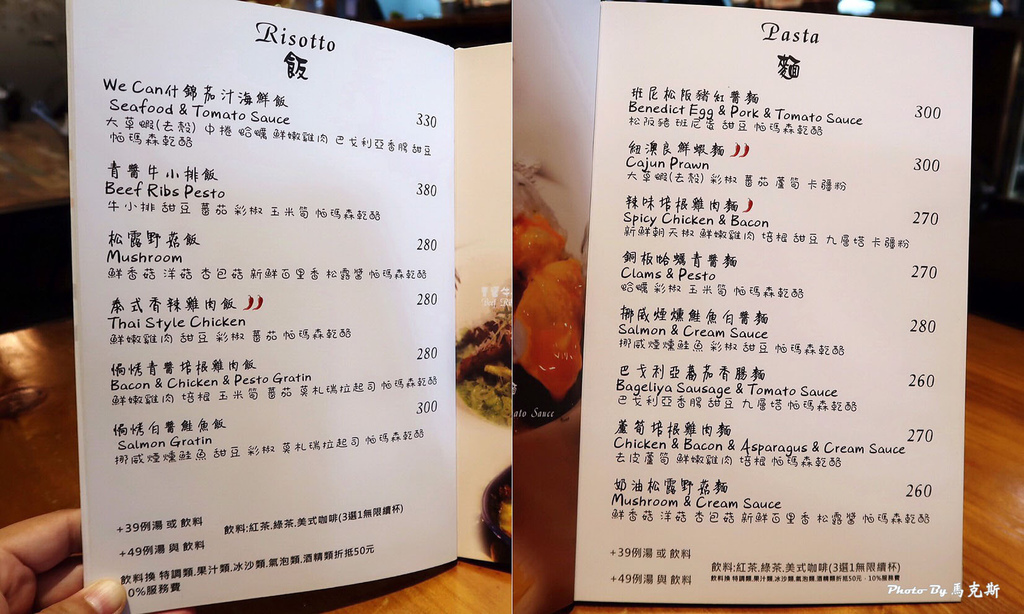 Risotto
飯
We Can什錦茄汁海鮮飯
Seafood & Tomato Sauce 330
大草蝦(去殼) 中捲 蛤蠣 鮮嫩雞肉 巴戈利亞香腸 甜豆
帕瑪森乾酪
青醬牛小排飯
Beef Ribs Pesto 380
牛小排 甜豆 蕃茄 彩椒 玉米筍 帕瑪森乾酪
松露野菇飯
Mushroom 280
鮮香菇 洋菇 杏包菇 新鮮百里香 松露醬 帕瑪森乾酪
泰式香辣雞肉飯 280
Thai Style Chicken
鮮嫩雞肉 甜豆 彩椒 蕃茄 帕瑪森乾酪
焗烤青醬培根雞肉飯 280
Bacon & Chicken & Pesto Gratin
鮮嫩雞肉 培根 玉米筍 蕃茄 莫札瑞拉起司 帕瑪森乾酪
焗烤白醬鮭魚飯 300
Salmon Gratin
挪威煙燻鮭魚 甜豆 彩椒 莫札瑞拉起司 帕瑪森乾酪
+39例湯 或 飲料 飲料:紅茶.綠茶.美式咖啡(3選1無限續杯)
+49例湯 與 飲料
飲料換 特調類.果汁類.冰沙類.氣泡類.酒精類折抵50元
0%服務費
Pasta
麵
班尼松阪豬紅醬麵
Benedict Egg & Pork & Tomato Sauce 300
松阪豬 班尼蛋 甜豆 帕瑪森乾酪
紐澳良鮮蝦麵
Cajun Prawn 300
大草蝦(去殼) 彩椒 蕃茄 蘆筍 卡疆粉
辣味培根雞肉麵
Spicy Chicken & Bacon 270
新鮮朝天椒 鮮嫩雞肉 培根 甜豆 九層塔 卡疆粉
銅板蛤蠣青醬麵
Clams & Pesto 270
蛤蠣 彩椒 玉米筍 帕瑪森乾酪
挪威煙燻鮭魚白醬麵
Salmon & Cream Sauce 280
挪威煙燻鮭魚 彩椒 甜豆 帕瑪森乾酪
巴戈利亞蕃茄香腸麵
Bageliya Sausage & Tomato Sauce 260
巴戈利亞香腸 甜豆 九層塔 帕瑪森乾酪
蘆筍培根雞肉麵
Chicken & Bacon & Asparagus & Cream Sauce 270
去皮蘆筍 鮮嫩雞肉 培根 帕瑪森乾酪
奶油松露野菇麵
Mushroom & Cream Sauce 260
鮮香菇 洋菇 杏包菇 新鮮百里香 松露醬 帕瑪森乾酪
+39例湯 或 飲料
飲料:紅茶.綠茶.美式咖啡(3選1無限續杯)
+49例湯 與 飲料 飲料換 特調類.果汁類.冰沙類.氣泡類.酒精類折抵50元 · 10%服務費
ato Sauce
Photo By 馬克斯